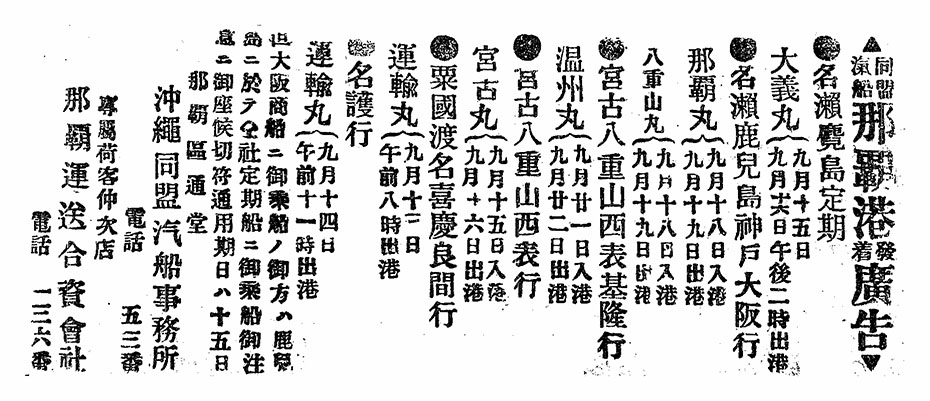 ▲同盟汽船那覇港發着廣告▼
●名瀨麑島定期
大義丸 九月十五日
九月十六日午後二時出港
●名瀨鹿兒島神戸大阪行
那覇丸 九月十八日入港
九月十九日出港
八重山丸 九月十八日入港
九月十九日出港
●宮古八重山西表基隆行
温州丸 九月廿一日入港
九月廿二日出港
●宮古八重山西表行
宮古丸 九月十五日入港
九月十六日出港
●粟國渡名喜慶良間行
運輸丸 九月十三日
午前八時出港
●名護行
運輸丸 九月十四日
午前十一時出港
但大阪商船ニ御乘船ノ御方ハ鹿兒
島ニ於テ仝社定期船ニ御乘船御注
意ニ御座候切符通用期日ハ十五日
那覇區通堂
沖繩同盟汽船事務所
電話 五三番
專屬荷客仲次店
那覇運送合資會社
電話 一三六番